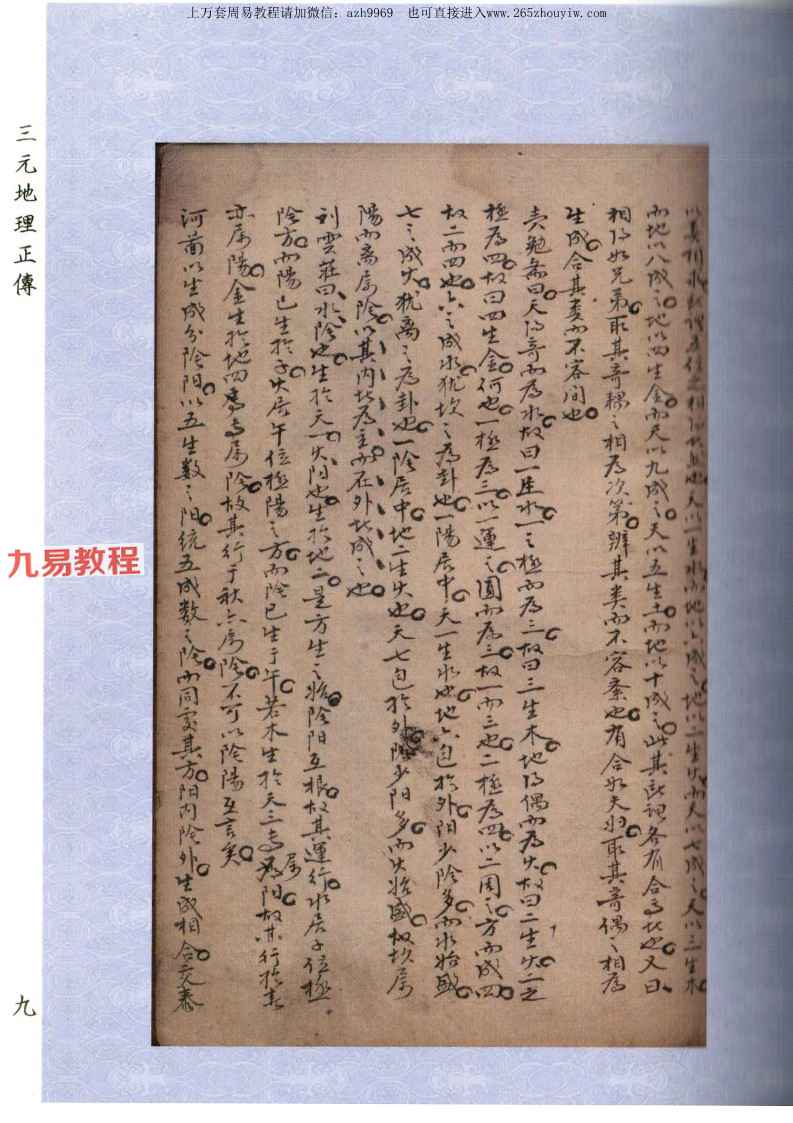 上万套周易教程请加微信：azh9969　也可直接进入www.265zhouyiw.com
三元地理正傳
而地以八成之。地以四生金。而天以九成之。天以五生土。而地以十成之。此其所謂各有合焉者也。又曰。
相得如兄弟。取其奇耦之相為次第。辨其类而不容紊也。有合如夫妇。取其奇偶之相為
生成。合其妻而不容间也。
黄勉斋曰。天得奇而為水。故曰一生水。一之極而為三。故曰三生木。地得偶而為火。故曰二生火。二之
極為四。故曰四生金。何也。一極為三。以一運之圓而為三。故一而三也。二極為四。以二周之方而成四。
故二而四也。六之成水。犹坎之為卦也。一陽居中。天一生水也。地六包於外。阳少陰多。而水始盛。
七之成火。犹离之為卦也。一陰居中。地二生火也。天七包於外。陰少阳多。而火始盛。故坎属
陽而离属陰。以其内者為主。而在外者成之也。
刘雲莊曰。水陰也。生於天一。火阳也。生於地二。是方生之始。陰阳互根。故其運行。水居子位極
陰方。而陽已生於子。火居午位極陽之方。而陰已生于午。若木生於天三。专属阳。故其行於春
亦属陽。金生於地四。专属陰。故其行于秋。亦属陰。不可以陰陽互言矣。
河圖以生成分陰阳。以五生数之阳。統五成数之陰。而同處其方。阳内陰外。生成相合。交泰
九易教程
九